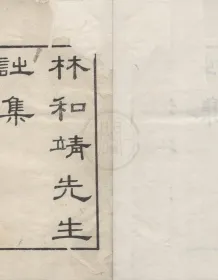 林和靖先生
詩集